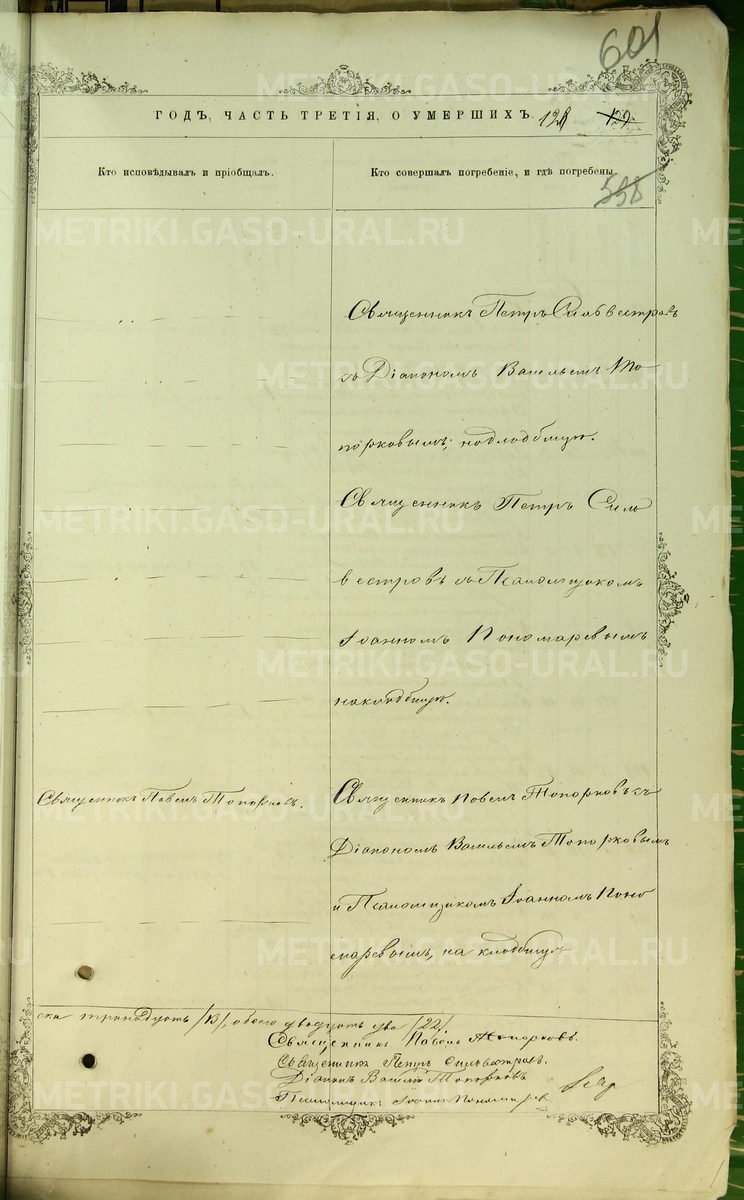 601
ГОДЪ, ЧАСТЬ ТРЕТІЯ, О УМЕРШИХЪ. 128 127
Кто исповѣдывалъ и пріобщалъ.
Кто совершалъ погребеніе, и гдѣ погребены
598
Священникъ Петръ Сильвестровъ
съ Діакономъ Васильемъ То
порковымъ,
Священникъ Петръ Силь
вестровъ съ Псаломщикомъ
Іоанномъ Пономаревымъ
на кладбищѣ.
Священникъ Павелъ Топорковъ.
Священникъ Павелъ Топорковъ съ
Діакономъ Васильемъ Топорковымъ
и Псаломщикомъ Іоанномъ Поно
маревымъ, на кладбищѣ
ска тринадцать /13/, обоего двадцать два /22/.
Священникъ Павелъ Топорковъ.
Священникъ Петръ Сильвестровъ.
Діаконъ Василій Топорковъ
Псаломщикъ Іоаннъ Пономаревъ
METRIKI.GASO-URAL.RU